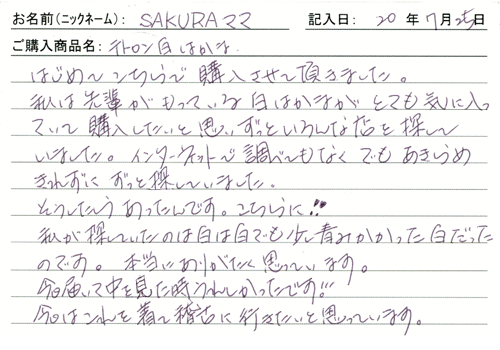 お名前(ニックネーム): SAKURAママ 記入日: 20年7月25日
ご購入商品名: テトロン白はかま
はじめて こちらで購入させて頂きました。
私は先輩がもっている白はかまがとても気に入っ
ていて購入したいと思いずっといろんな店を探して
いました。インターネットで調べてもなくでもあきらめ
きれずにずっと探していました。
そうしたらあったんです。こちらに!!
私が探していたのは白は白でも少し青みがかった白だった
のです。本当にありがたく思っています。
今日届いて中を見た時うれしかったです!!
今日はこれを着て稽古に行きたいと思っています。